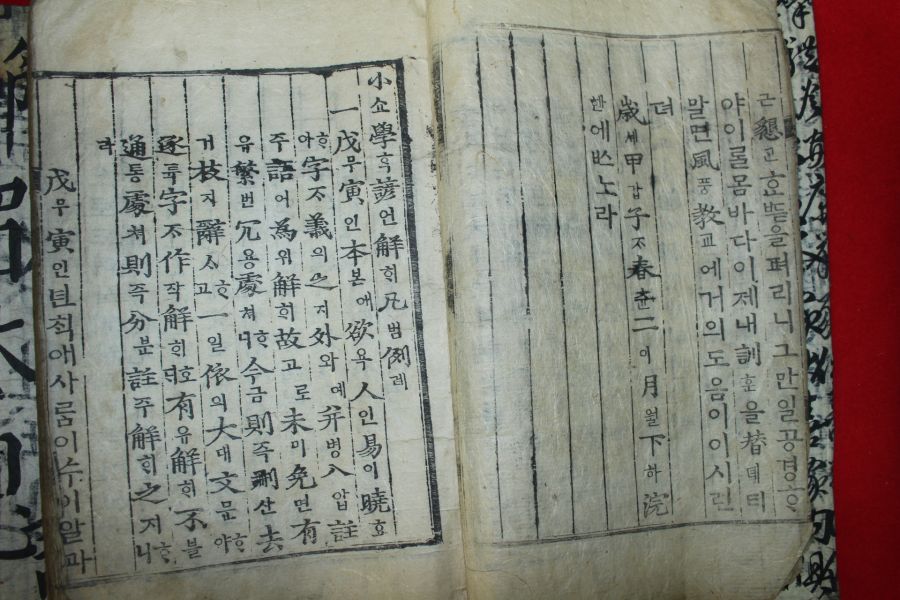 懇군효뜯을펴리니그만일공경으
야이ᄅᆞᆯ몸바다이제내訓훈을替톄티
말면風풍敎교에거의도음이이시린
뎌
歲셰甲갑子ᄌᆞ春츈二이月월下하浣
에ᄡᅳ노라
小쇼學ᄒᆞᆨ諺언解ᄒᆡ凡범例례
一戊무寅인本본애欲욕人인易이曉효
ᄒᆞ야字ᄌᆞ義의之지外외와예幷병入입註
주語어爲위解ᄒᆡ故고로未미免면有
유繁번冗용處쳐ᄒᆞ니今금則즉刪산去
거枝지辭ᄉᆞᄒᆞ고一일依의大대文문ᄒᆞ야
逐튝字ᄌᆞ作작解ᄒᆡ호ᄃᆡ有유解ᄒᆡ不블
通통處쳐則즉分분註주解ᄒᆡ之지ᄒᆞ니
라
戊무寅인년ᄎᆡᆨ애사ᄅᆞᆷ이수이알과